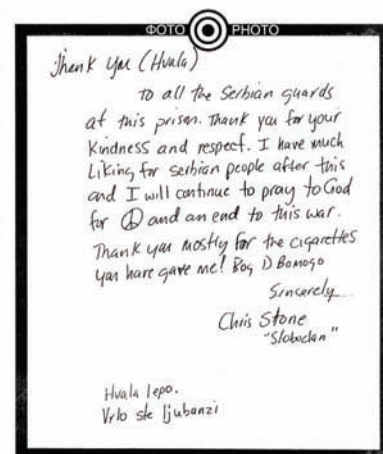 ФОТО PHOTO
Thank you (Hvala)
To all the Serbian guards
at this prison. Thank you for your
kindness and respect. I have much
Liking for serbian people after this
and I will continue to pray to God
for ☮ and an end to this war.
Thank you mostly for the cigarettes
you have gave me! Bog D Bomogo
Sincerely
Chris Stone
"Slobodan"
Hvala lepo.
Vrlo ste ljubanzi